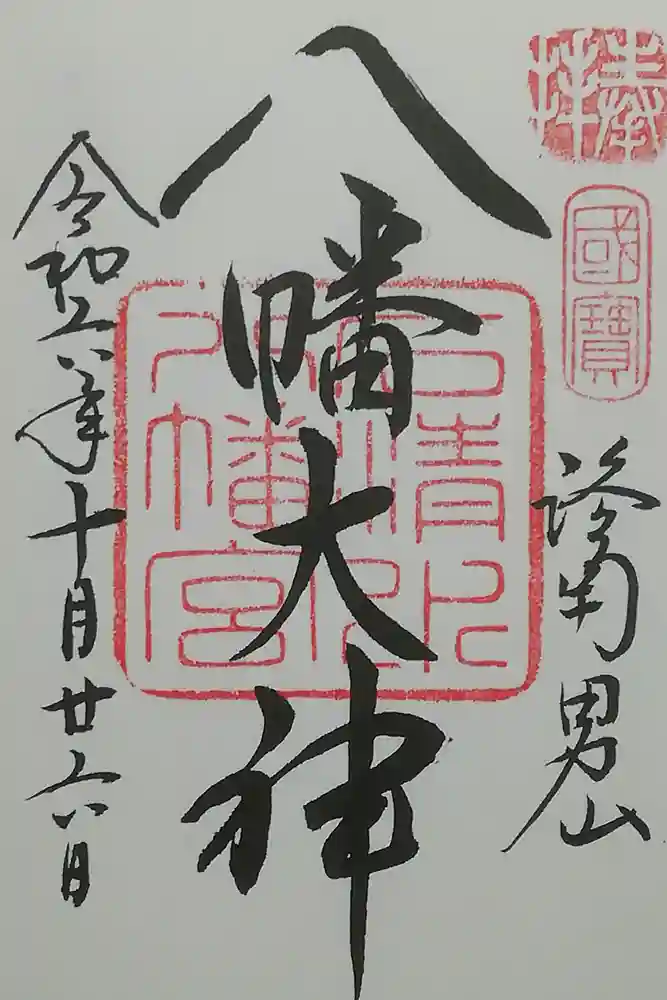 奉拝
國寶
洛南 男山
八幡大神
八幡宮
令和六年十月廿六日